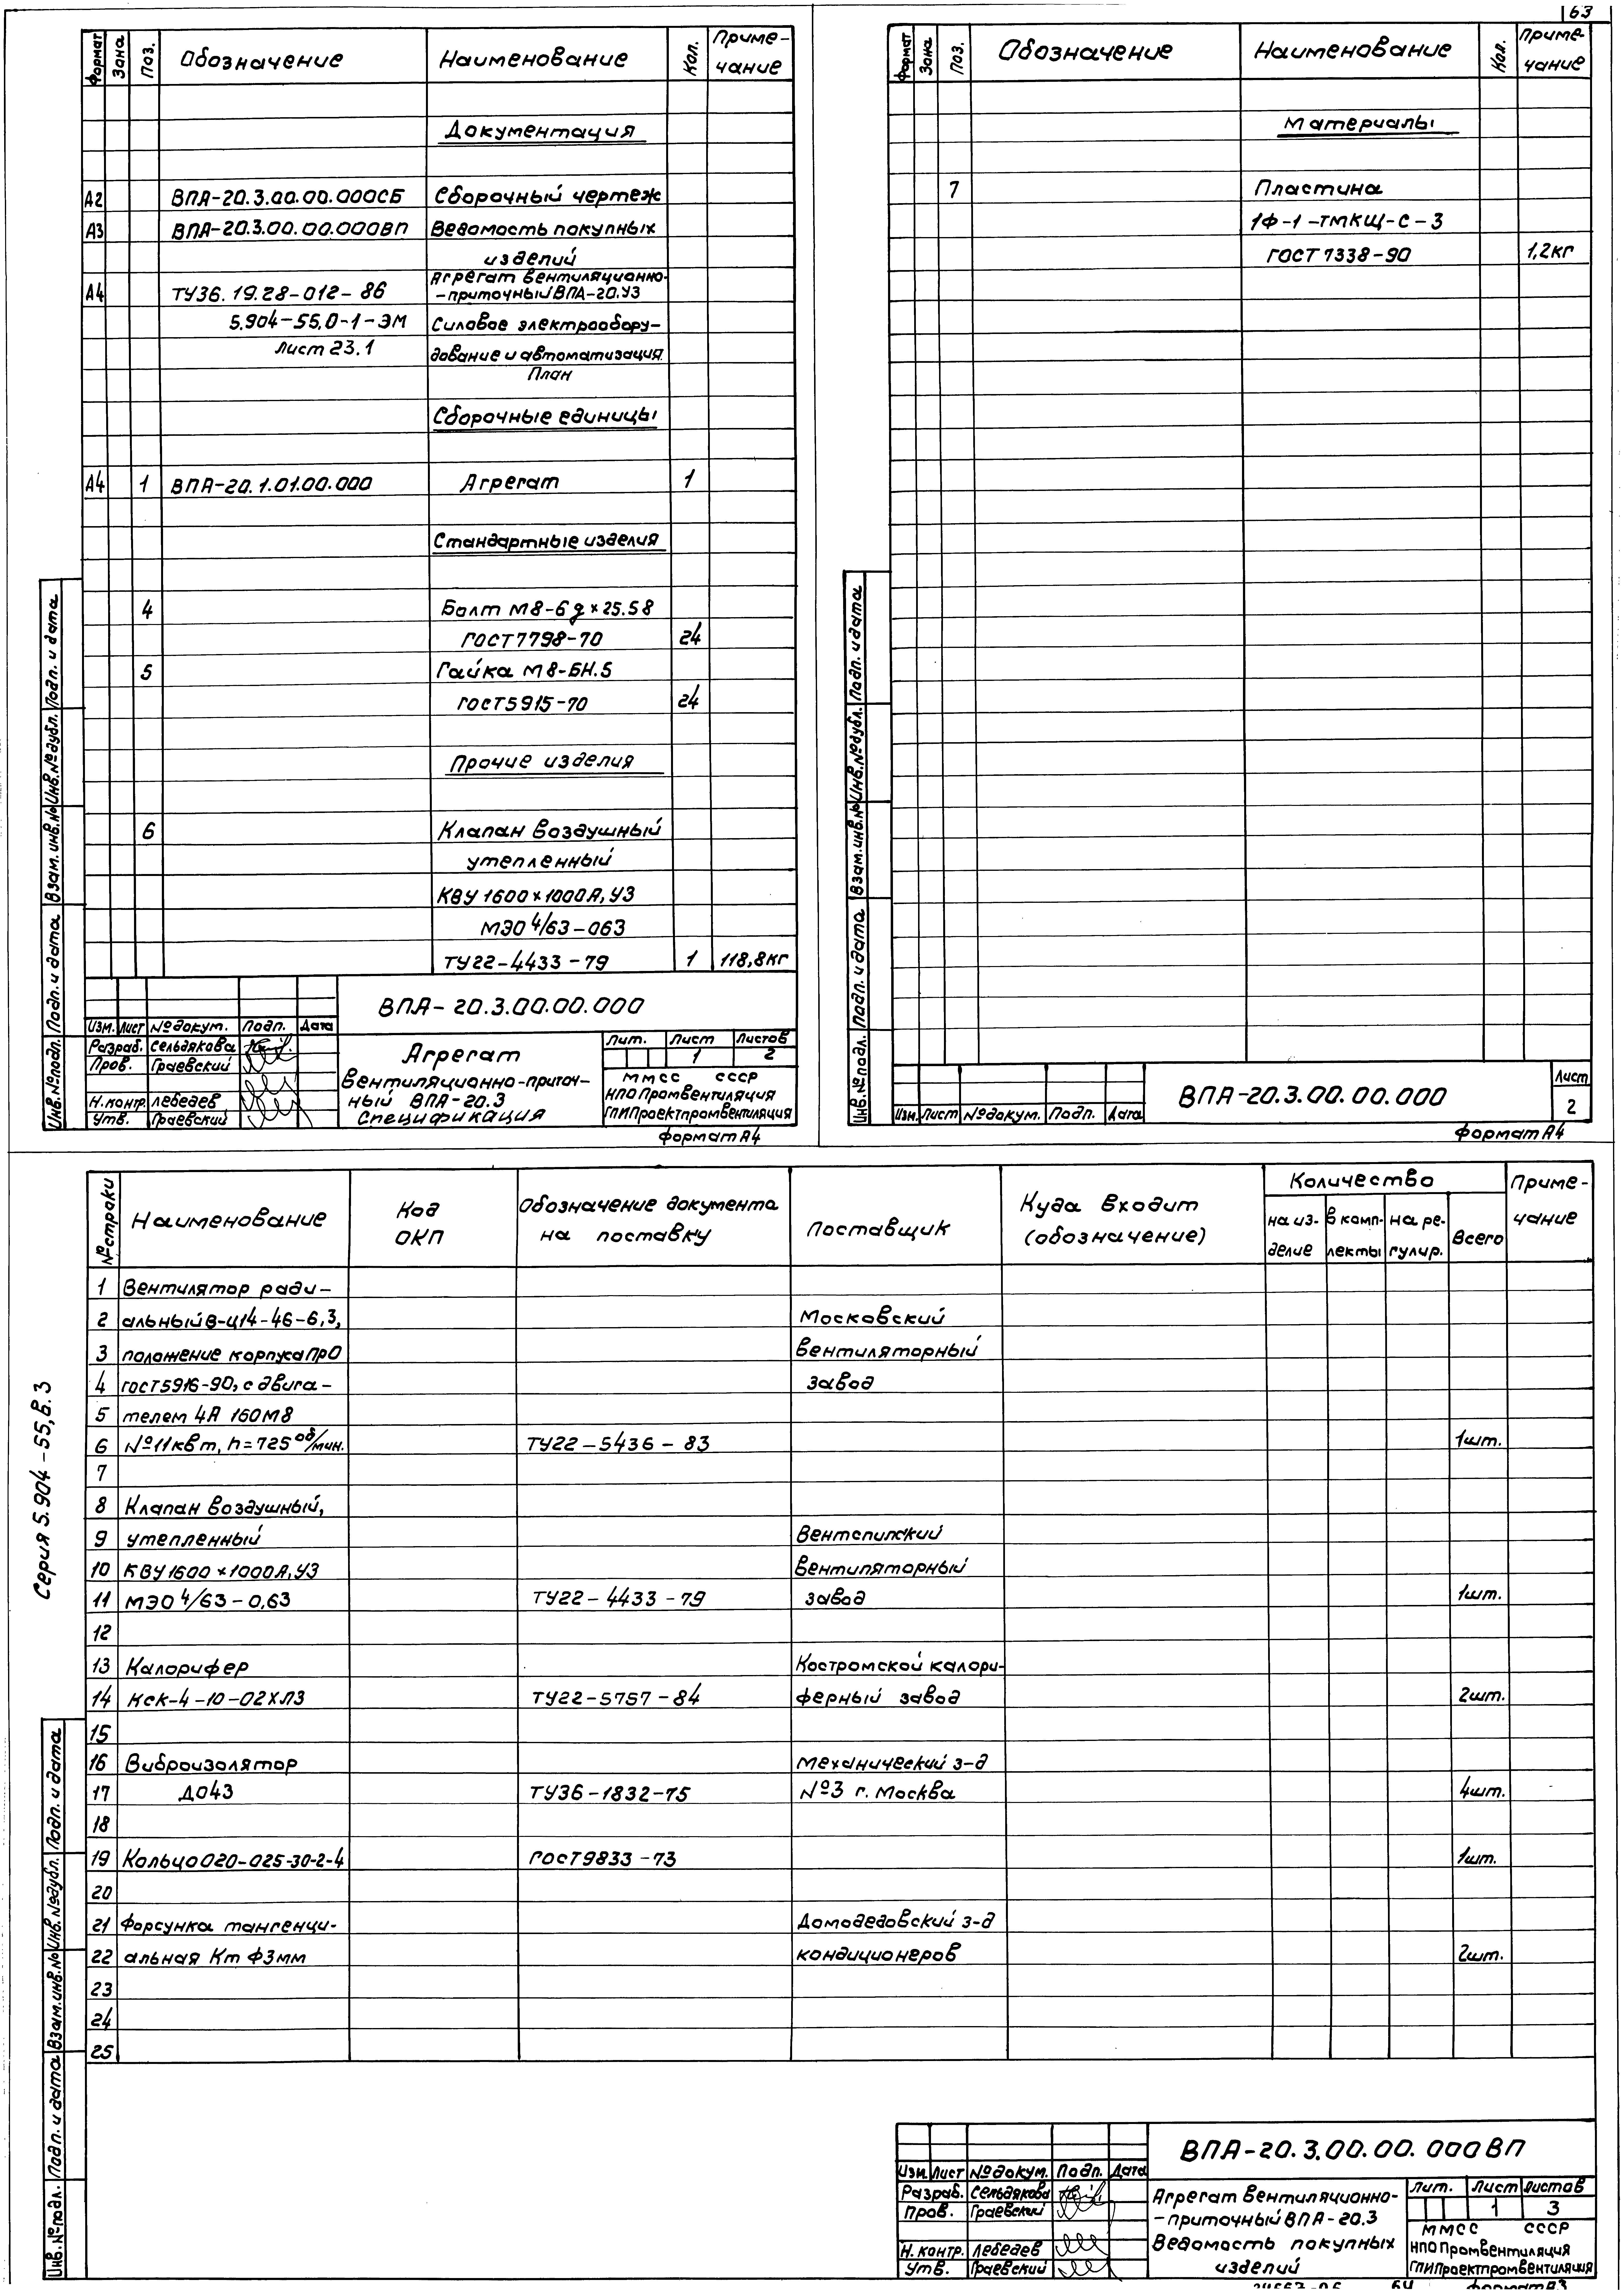 63
Формат Зона Поз. Обозначение Наименование Кол. Приме-
чание
Документация
А2 ВПА-20.3.00.00.000СБ Сборочный чертеж
А3 ВПА-20.3.00.00.000ВП Ведомость покупных
изделий
Агрегат вентиляционно-
А4 ТУ36.19.28-012-86 -приточный ВПА-20.У3
5.904-55.0-1-ЭМ Силовое электрообору-
Лист 23.1 дование и автоматизация.
План
Сборочные единицы
А4 1 ВПА-20.1.01.00.000 Агрегат 1
Стандартные изделия
4 Болт М8-6g×25.58
ГОСТ 7798-70 24
5 Гайка М8-6Н.5
ГОСТ 5915-70 24
Прочие изделия
6 Клапан воздушный
утепленный
КВУ 1600×1000А,У3
МЭО 4/63-063
ТУ22-4433-79 1 118,8кг
ВПА-20.3.00.00.000
Изм. Лист №докум. Подп. Дата
Разраб. Сельдякова
Пров. Граевский
Н.контр. Лебедев
Утв. Граевский
Агрегат
вентиляционно-приточ-
ный ВПА-20.3
Спецификация
Лит. Лист Листов
1 2
ММСС СССР
НПО Промвентиляция
ГПИ Проектпромвентиляция
Формат А4
Инв.№подл. Подп. и дата Взам.инв.№ Инв.№дубл. Подп. и дата
Формат Зона Поз. Обозначение Наименование Кол. Приме-
чание
Материалы
7 Пластина
1Ф-1-ТМКЩ-С-3
ГОСТ 7338-90 1,2кг
Изм. Лист №докум. Подп. Дата
ВПА-20.3.00.00.000
Лист
2
Формат А4
Инв.№подл. Подп. и дата Взам.инв.№ Инв.№дубл. Подп. и дата
№строки Наименование Код
ОКП Обозначение документа
на поставку Поставщик Куда входит
(обозначение) Количество Приме-
чание
на из-
делие в комп-
лекты на ре-
гулир. Всего
1 Вентилятор ради-
2 альный В-Ц14-46-6,3, Московский
3 положение корпуса Пр0 вентиляторный
4 ГОСТ 5916-90, с двига- завод
5 телем 4А 160М8
6 №11квт, n=725 об/мин. ТУ22-5436-83 1шт.
7
8 Клапан воздушный,
9 утепленный Вентспилский
10 КВУ 1600×1000А,У3 вентиляторный
11 МЭО 4/63-0,63 ТУ22-4433-79 завод 1шт.
12
13 Калорифер Костромской калори-
14 КСк-4-10-02ХЛ3 ТУ22-5757-84 ферный завод 2шт.
15
16 Виброизолятор Механический з-д
17 ДО43 ТУ36-1832-75 №3 г. Москва 4шт.
18
19 Кольцо 020-025-30-2-4 ГОСТ 9833-73 1шт.
20
21 Форсунка тангенци- Домодедовский з-д
22 альная Кт Ф3мм кондиционеров 2шт.
23
24
25
Серия 5.904-55, В.3
Инв.№подл. Подп. и дата Взам.инв.№ Инв.№дубл. Подп. и дата
ВПА-20.3.00.00.000ВП
Изм. Лист №докум. Подп. Дата
Разраб. Сельдякова
Пров. Граевский
Н.контр. Лебедев
Утв. Граевский
Агрегат вентиляционно-
-приточный ВПА-20.3
Ведомость покупных
изделий
Лит. Лист Листов
1 3
ММСС СССР
НПО Промвентиляция
ГПИ Проектпромвентиляция
Формат А3